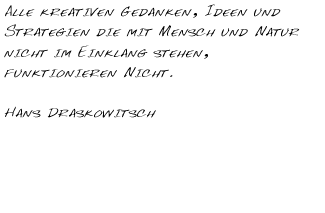 Alle kreativen Gedanken, Ideen und
Strategien die mit Mensch und Natur
nicht im Einklang stehen,
funktionieren Nicht.
Hans Draskowitsch